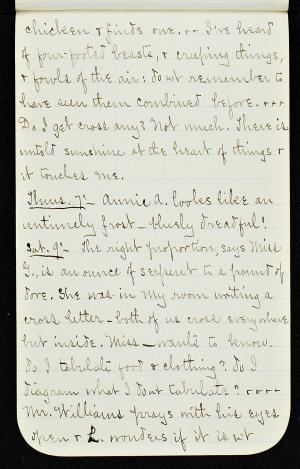 chicken + finds one. ++ I've heard
of four-footed beasts, + creeping things,
+ fowls of the air: do n't remember to
have seen them combined before. +++
Do I get cross any? Not much. There is
untold sunshine at the heart of things +
it touches me.
Thurs. 7- Annie A. looks like an
untimely frost - bluely dreadful!
Sat. 9- The right proportion, says Miss
G., is an ounce of serpent to a pound of
dove. She was in my room writing a
cross letter - both of us cross everywhere
but inside. Miss - wants to know
do I tabulate food + clothing? do I
diagram what I don't tabulate? ++++
Mr. Williams prays with his eyes
open + L. wonders if it is n't